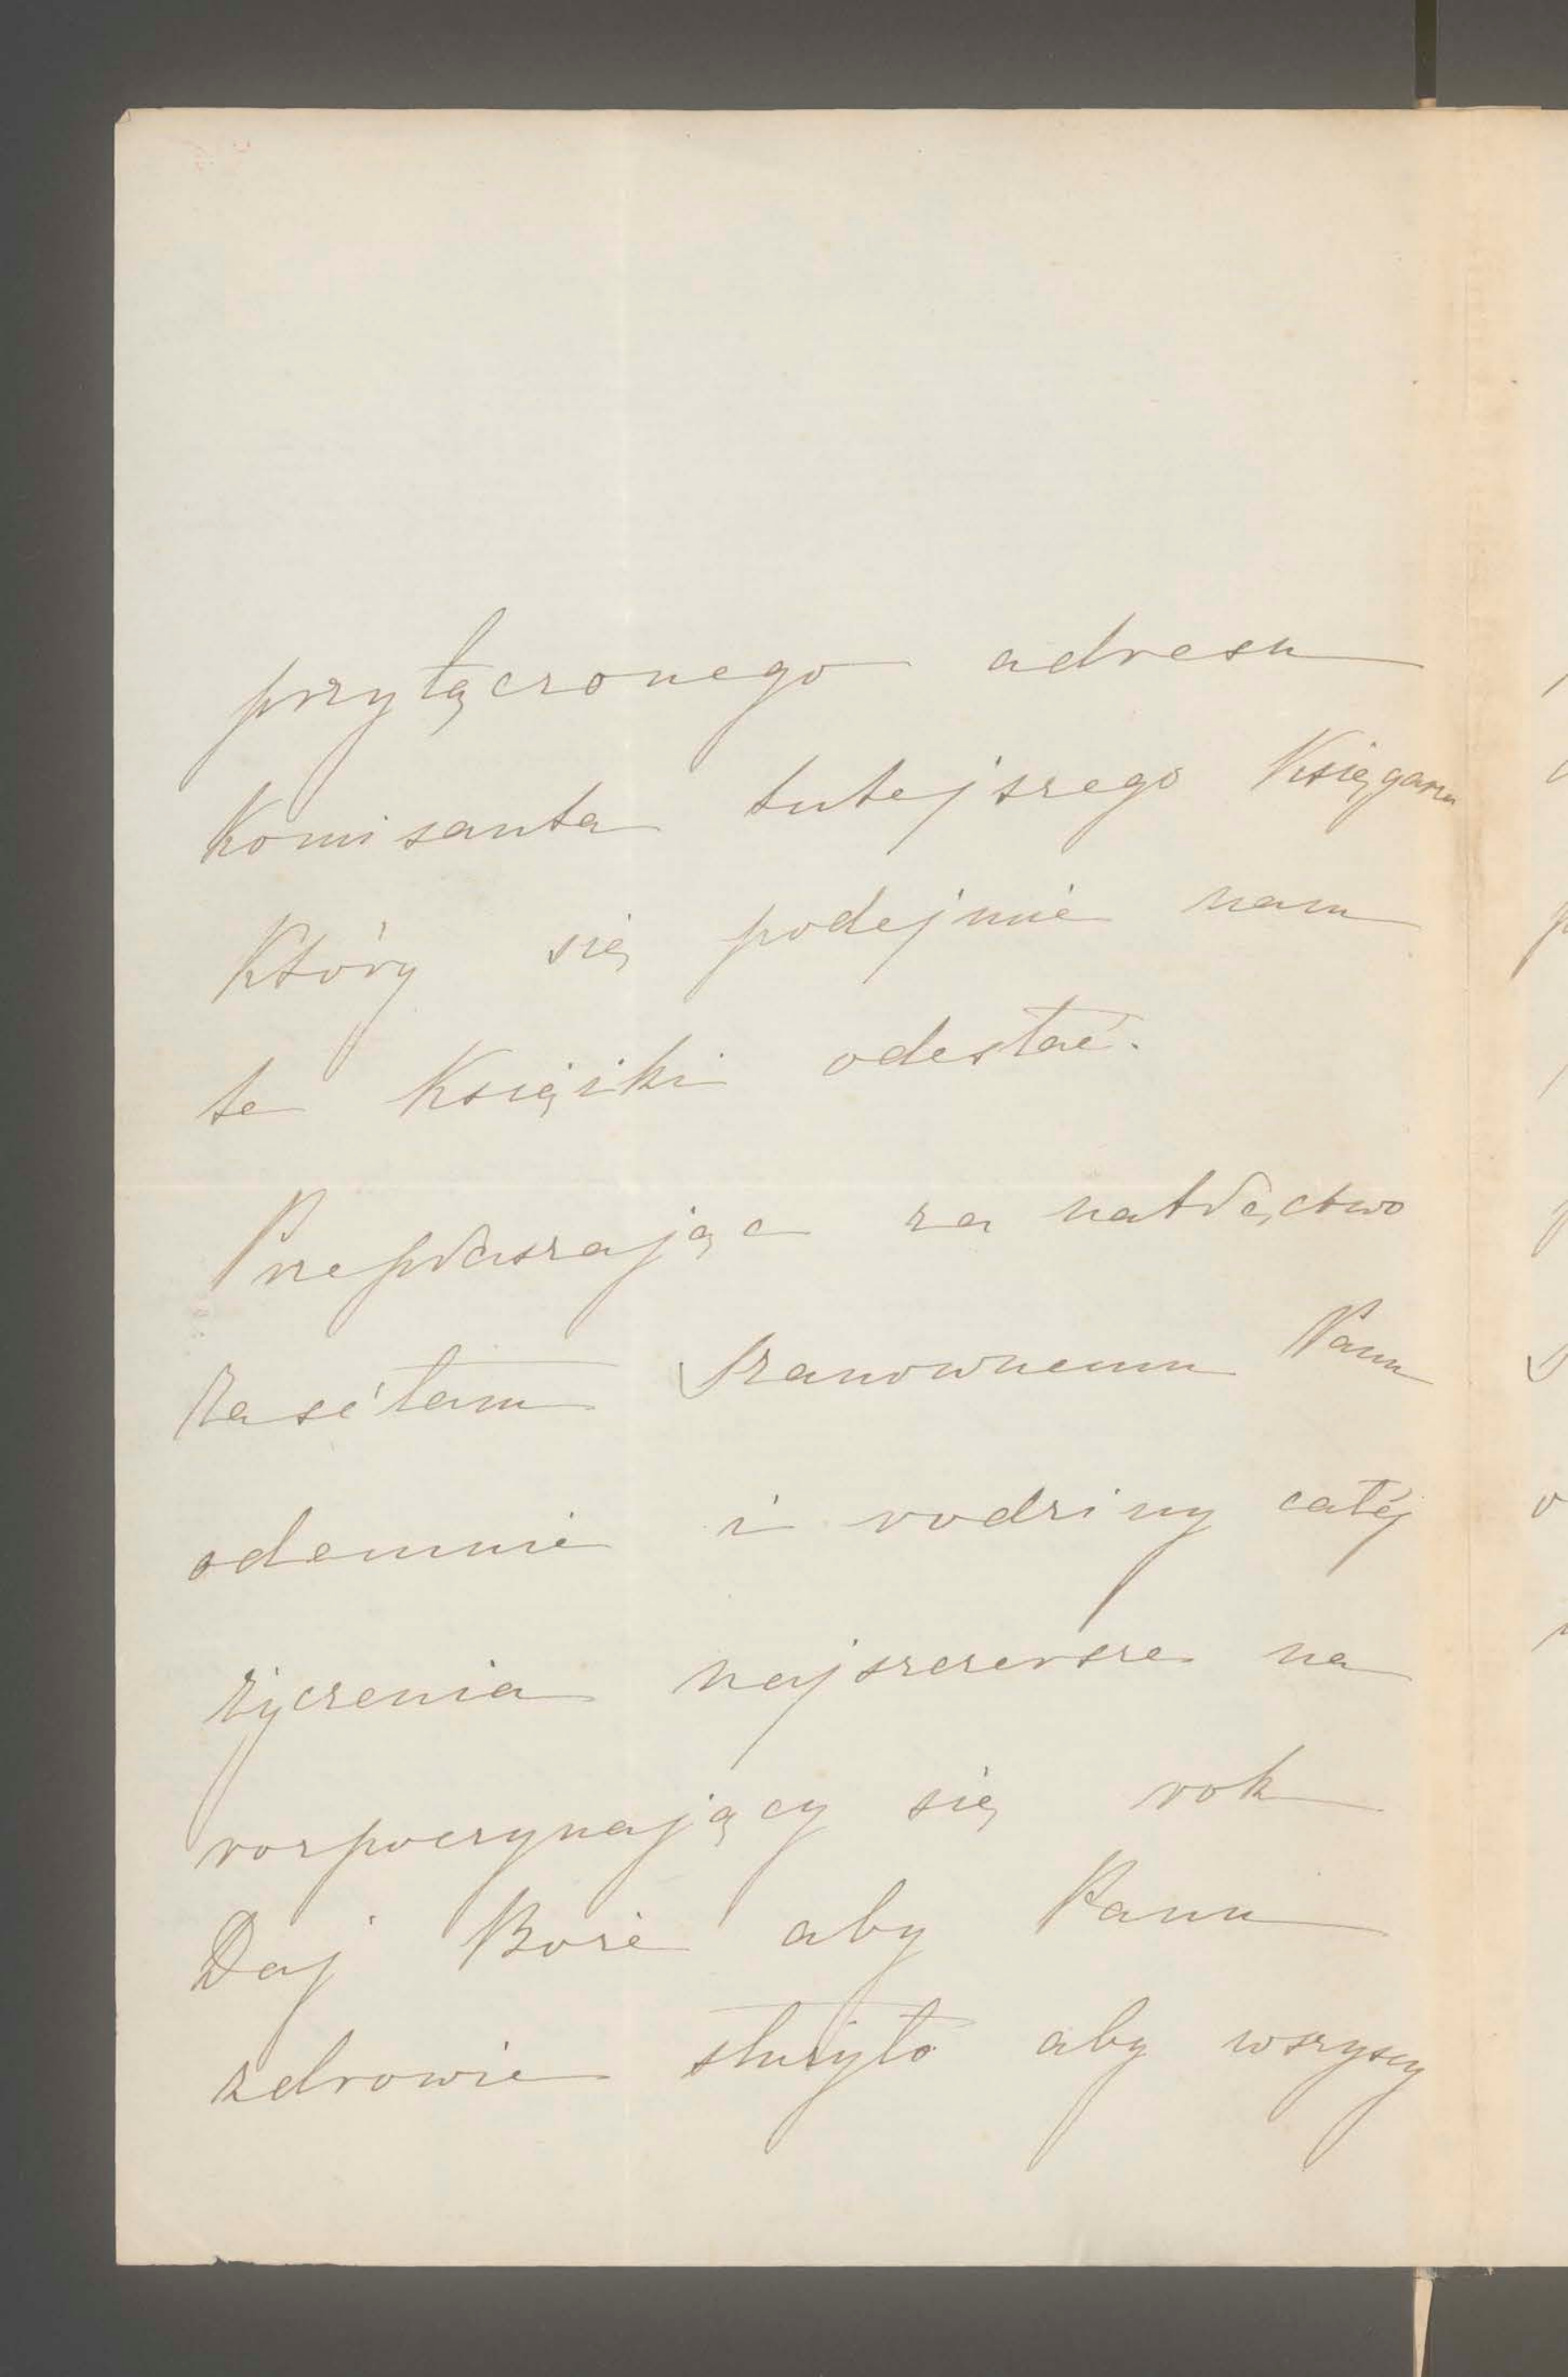 przyłączonego adresu
Komisanta tutejszego Księgarza
Który się podejmie nam
te Książki odesłać.
Przepraszając za natręctwo
Zaséłam Szanownemu Panu
odemnie i rodziny całéj
życzenia najszczersze na
rozpoczynający się rok
Daj Boże aby Panu
zdrowie służyło aby wszyscy